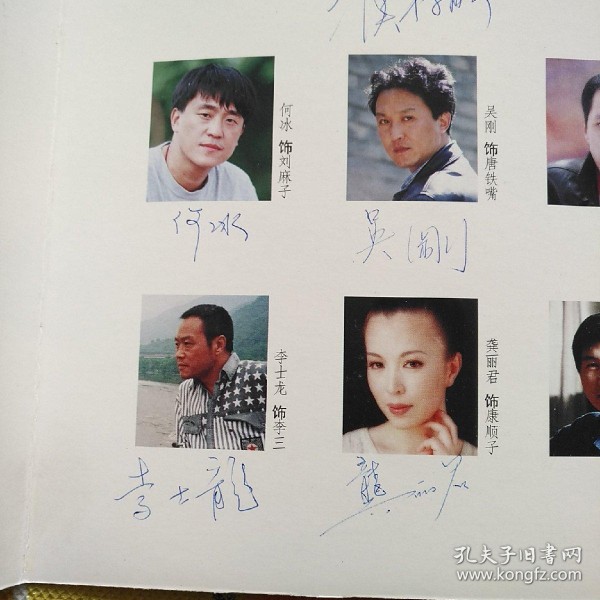 何冰 饰刘麻子
吴刚 饰唐铁嘴
何冰
吴刚
李士龙 饰李三
龚丽君 饰康顺子
李士龍
龔丽君
孔夫子旧书网
www.kongfz.com